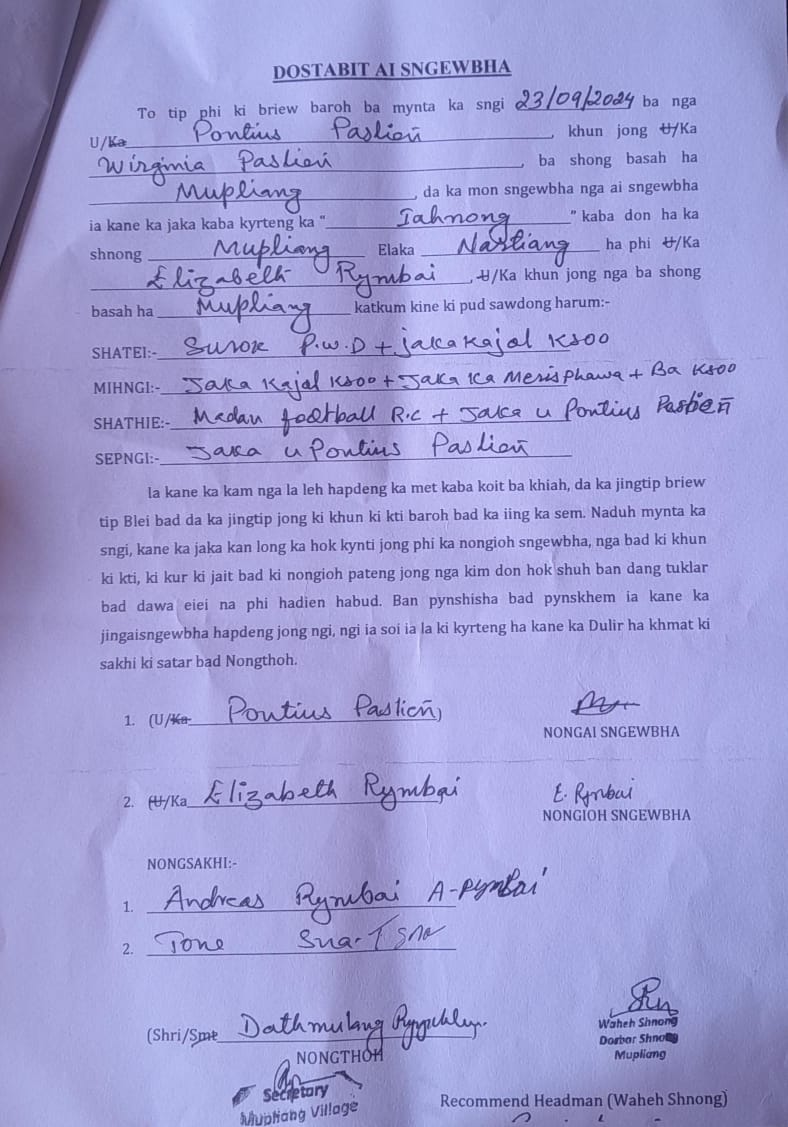 DOSTABIT AI SNGEWBHA
To tip phi ki briew baroh ba mynta ka sngi 23/09/2024 ba nga
U/Ka Pontius Paslieñ, khun jong U/Ka
Wirginia Paslieñ, ba shong basah ha
Mupliang, da ka mon sngewbha nga ai sngewbha
ia kane ka jaka kaba kyrteng ka "Iahnong" kaba don ha ka
shnong Mupliang Elaka Nartiang ha phi U/Ka
Elizabeth Rymbai, U/Ka khun jong nga ba shong
basah ha Mupliang katkum kine ki pud sawdong harum:-
SHATEI:- Surok P.W.D + jaka Kajal Ksoo
MIHNGI:- Jaka Kajal Ksoo + Jaka Ka Merisphawa + Ba Ksoo
SHATHIE:- Madan football R.C + Jaka u Pontius Paslieñ
SEPNGI:- Jaka u Pontius Paslieñ
Ia kane ka kam nga la leh hapdeng ka met kaba koit ba khiah, da ka jingtip briew
tip Blei bad da ka jingtip jong ki khun ki kti baroh bad ka iing ka sem. Naduh mynta ka
sngi, kane ka jaka kan long ka hok kynti jong phi ka nongioh sngewbha, nga bad ki khun
ki kti, ki kur ki jait bad ki nongioh pateng jong nga kim don hok shuh ban dang tuklar
bad dawa eiei na phi hadien habud. Ban pynshisha bad pynskhem ia kane ka
jingaisngewbha hapdeng jong ngi, ngi ia soi ia la ki kyrteng ha kane ka Dulir ha khmat ki
sakhi ki satar bad Nongthoh.
1. (U/Ka Pontius Paslieñ)
NONGAI SNGEWBHA
2. (U/Ka Elizabeth Rymbai E. Rymbai
NONGIOH SNGEWBHA
NONGSAKHI:-
1. Andreas Rymbai A-Rymbai
2. Tone Sna
(Shri/Smt Dathmulang
NONGTHOH
Waheh Shnong
Dorbar Shnong
Mupliang
Secretary
Mupliang Village
Recommend Headman (Waheh Shnong)